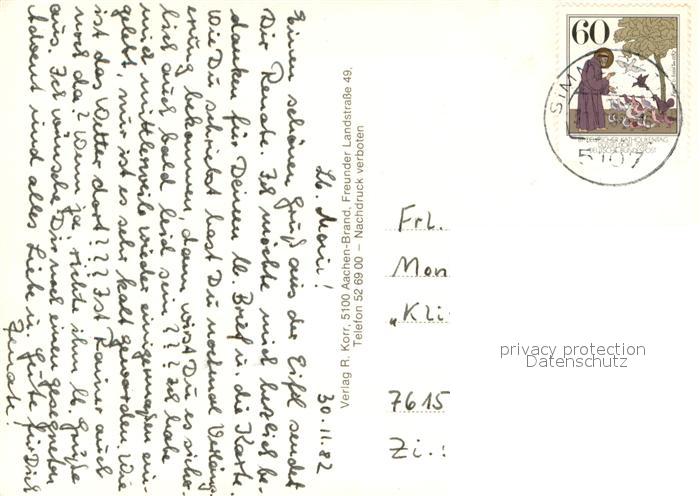 Lb. Moni! 30.11.82
Einen schönen Gruß aus der Eifel sendet
Dir Renate. Ich möchte mich herzlich be-
danken für Deinen lb. Brief u. die Karte.
Wie Du schriebst hast Du nochmal Verläng-
erung bekommen, dann wirst Du es sicher-
lich auch bald leid sein??? Ich habe
mich mittlerweile wieder einigermaßen ein-
gelebt, nur ist es sehr kalt geworden. Wie
ist das Wetter dort??? Ist Rainer auch
noch da? Wenn ja, richte ihm lb. Grüße
aus. Ich wünsche Dir noch einen gesegneten
Advent und alles Liebe u. Gute für Dich
Renate!
Verlag R. Korr, 5100 Aachen-Brand, Freunder Landstraße 49,
Telefon 52 69 00 – Nachdruck verboten
60
SIMM
5107
Frl.
Mon
"Kli
7615
Zi.:
privacy protection
Datenschutz